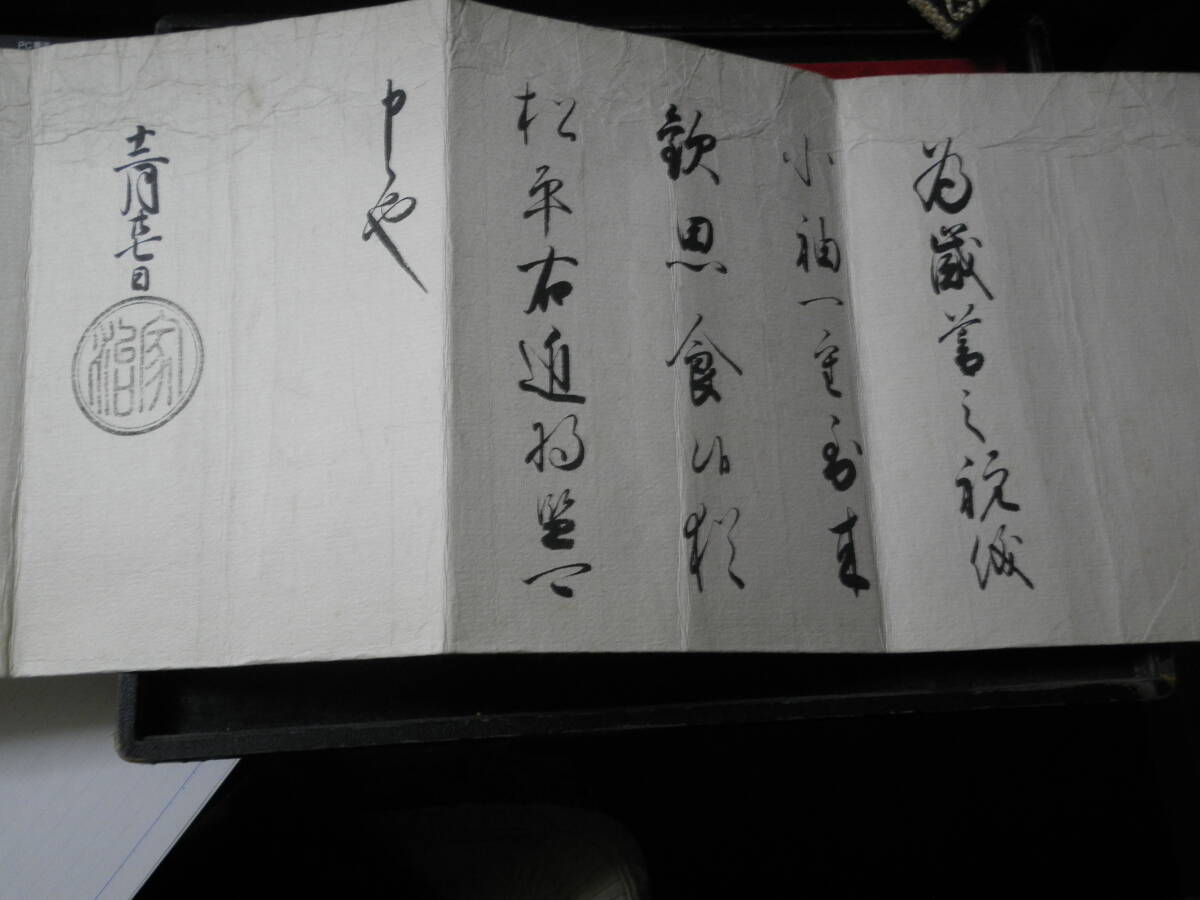 為歳暮之祝儀
小袖一重到来
歓思食候猶
松平右近将監可
申候也
十二月廿七日
家治